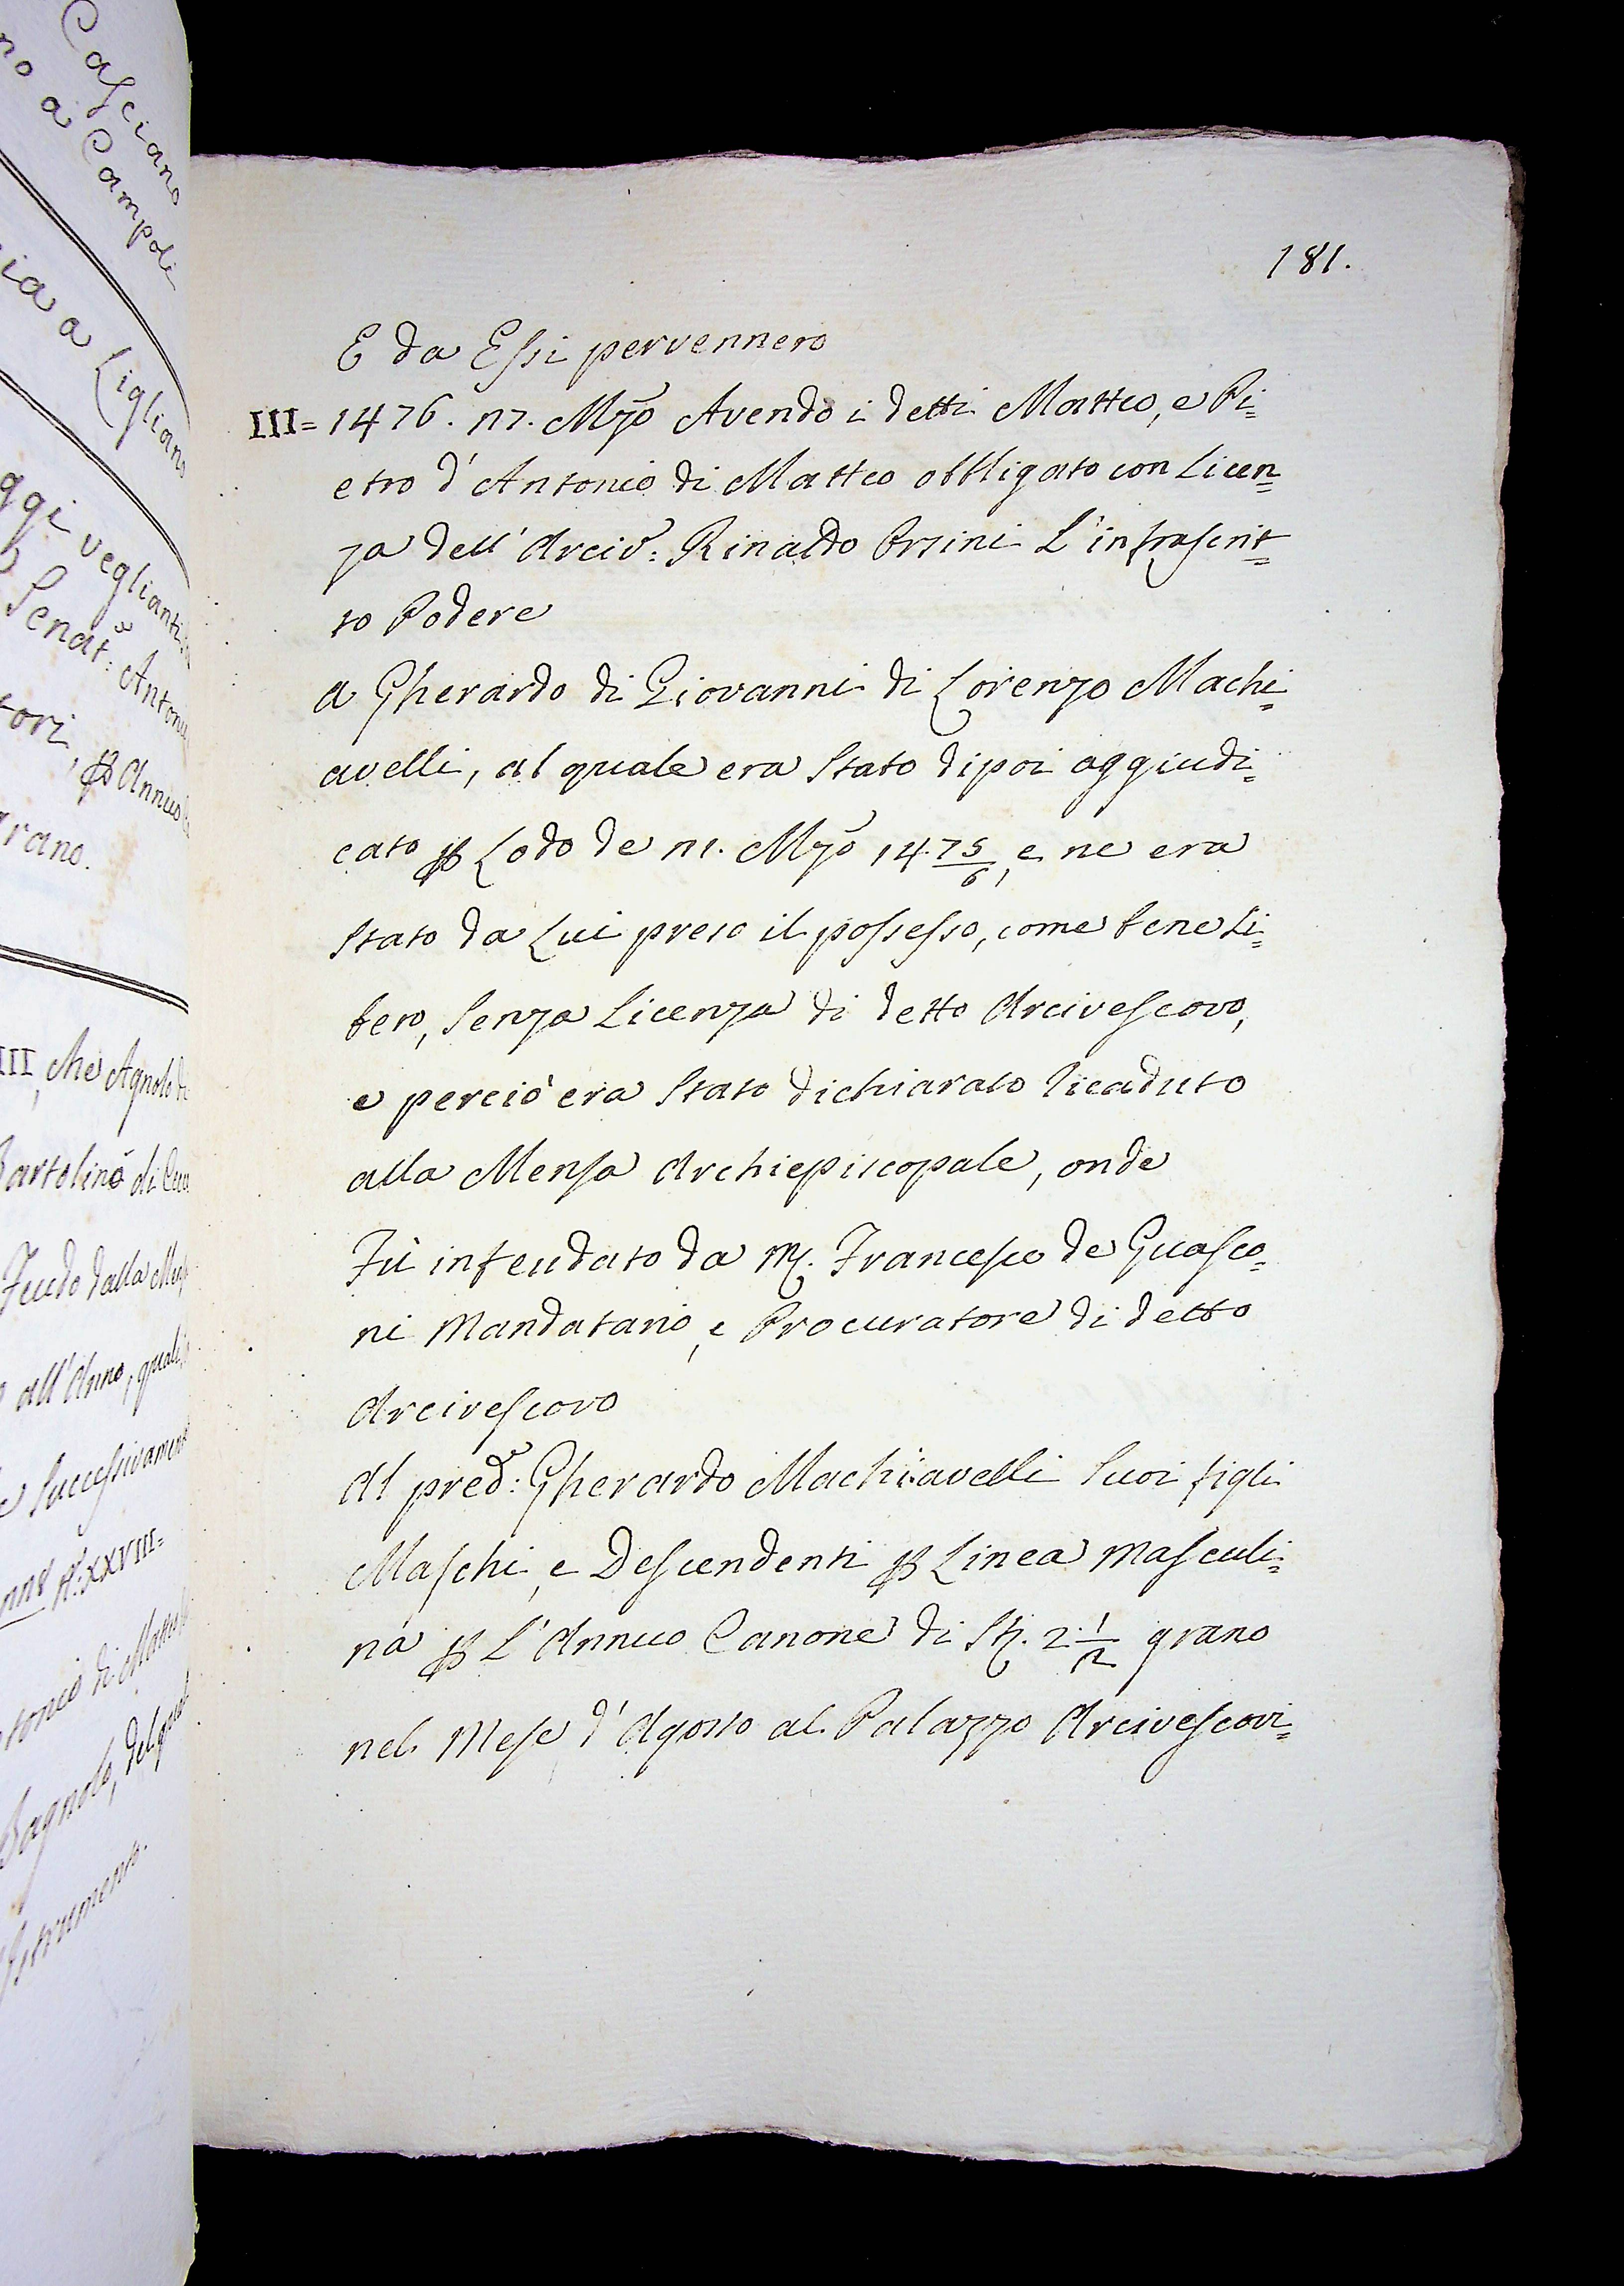 181.
E da Essi pervennero
III= 1476. 27. Mzo Avendo i detti Matteo, e Pi=
etro d'Antonio di Matteo obbligato con Licen=
za dell'Arciv: Rinaldo Orsini L'infrascrit=
to Podere
A Gherardo di Giovanni di Lorenzo Machi=
avelli, al quale era Stato dipoi aggiudi=
cato ꝑ Lodo de 21. Mzo 1475/6, e ne era
Stato da Lui preso il possesso, come bene Li=
bero, Senza Licenza di detto Arcivescovo,
e perciò era Stato dichiarato ricaduto
alla Mensa Archiepiscopale, onde
Fù infeudato da M. Francesco de Guasco=
ni Mandatario, e Procuratore di detto
Arcivescovo
Al pred: Gherardo Machiavelli Suoi figli
Maschi, e Descendenti ꝑ Linea Masculi=
na ꝑ L'Annuo Canone di St. 2 1/2 grano
nel Mese d'Agosto al Palazzo Arcivescovi=
Casciano
no a Campoli
ia a Ligliano
ggi veglianti
Senat: Antonio
tori, ꝑ Annuo
rano.
III, che Agnolo di
Bartolino di
Feudo dalla
all'Anno, quali
e Successivamente
XXVIII=
tonio di Matteo
Bagnolo, del
Istrumento.